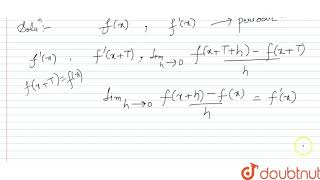 Soluⁿ:- f(x) , f'(x) → periodic
f'(x) , f'(x+T) , lim h→0 f(x+T+h) - f(x+T) / h
f(x+T)=f(x)
lim h→0 f(x+h) - f(x) / h = f'(x)
doubtnut